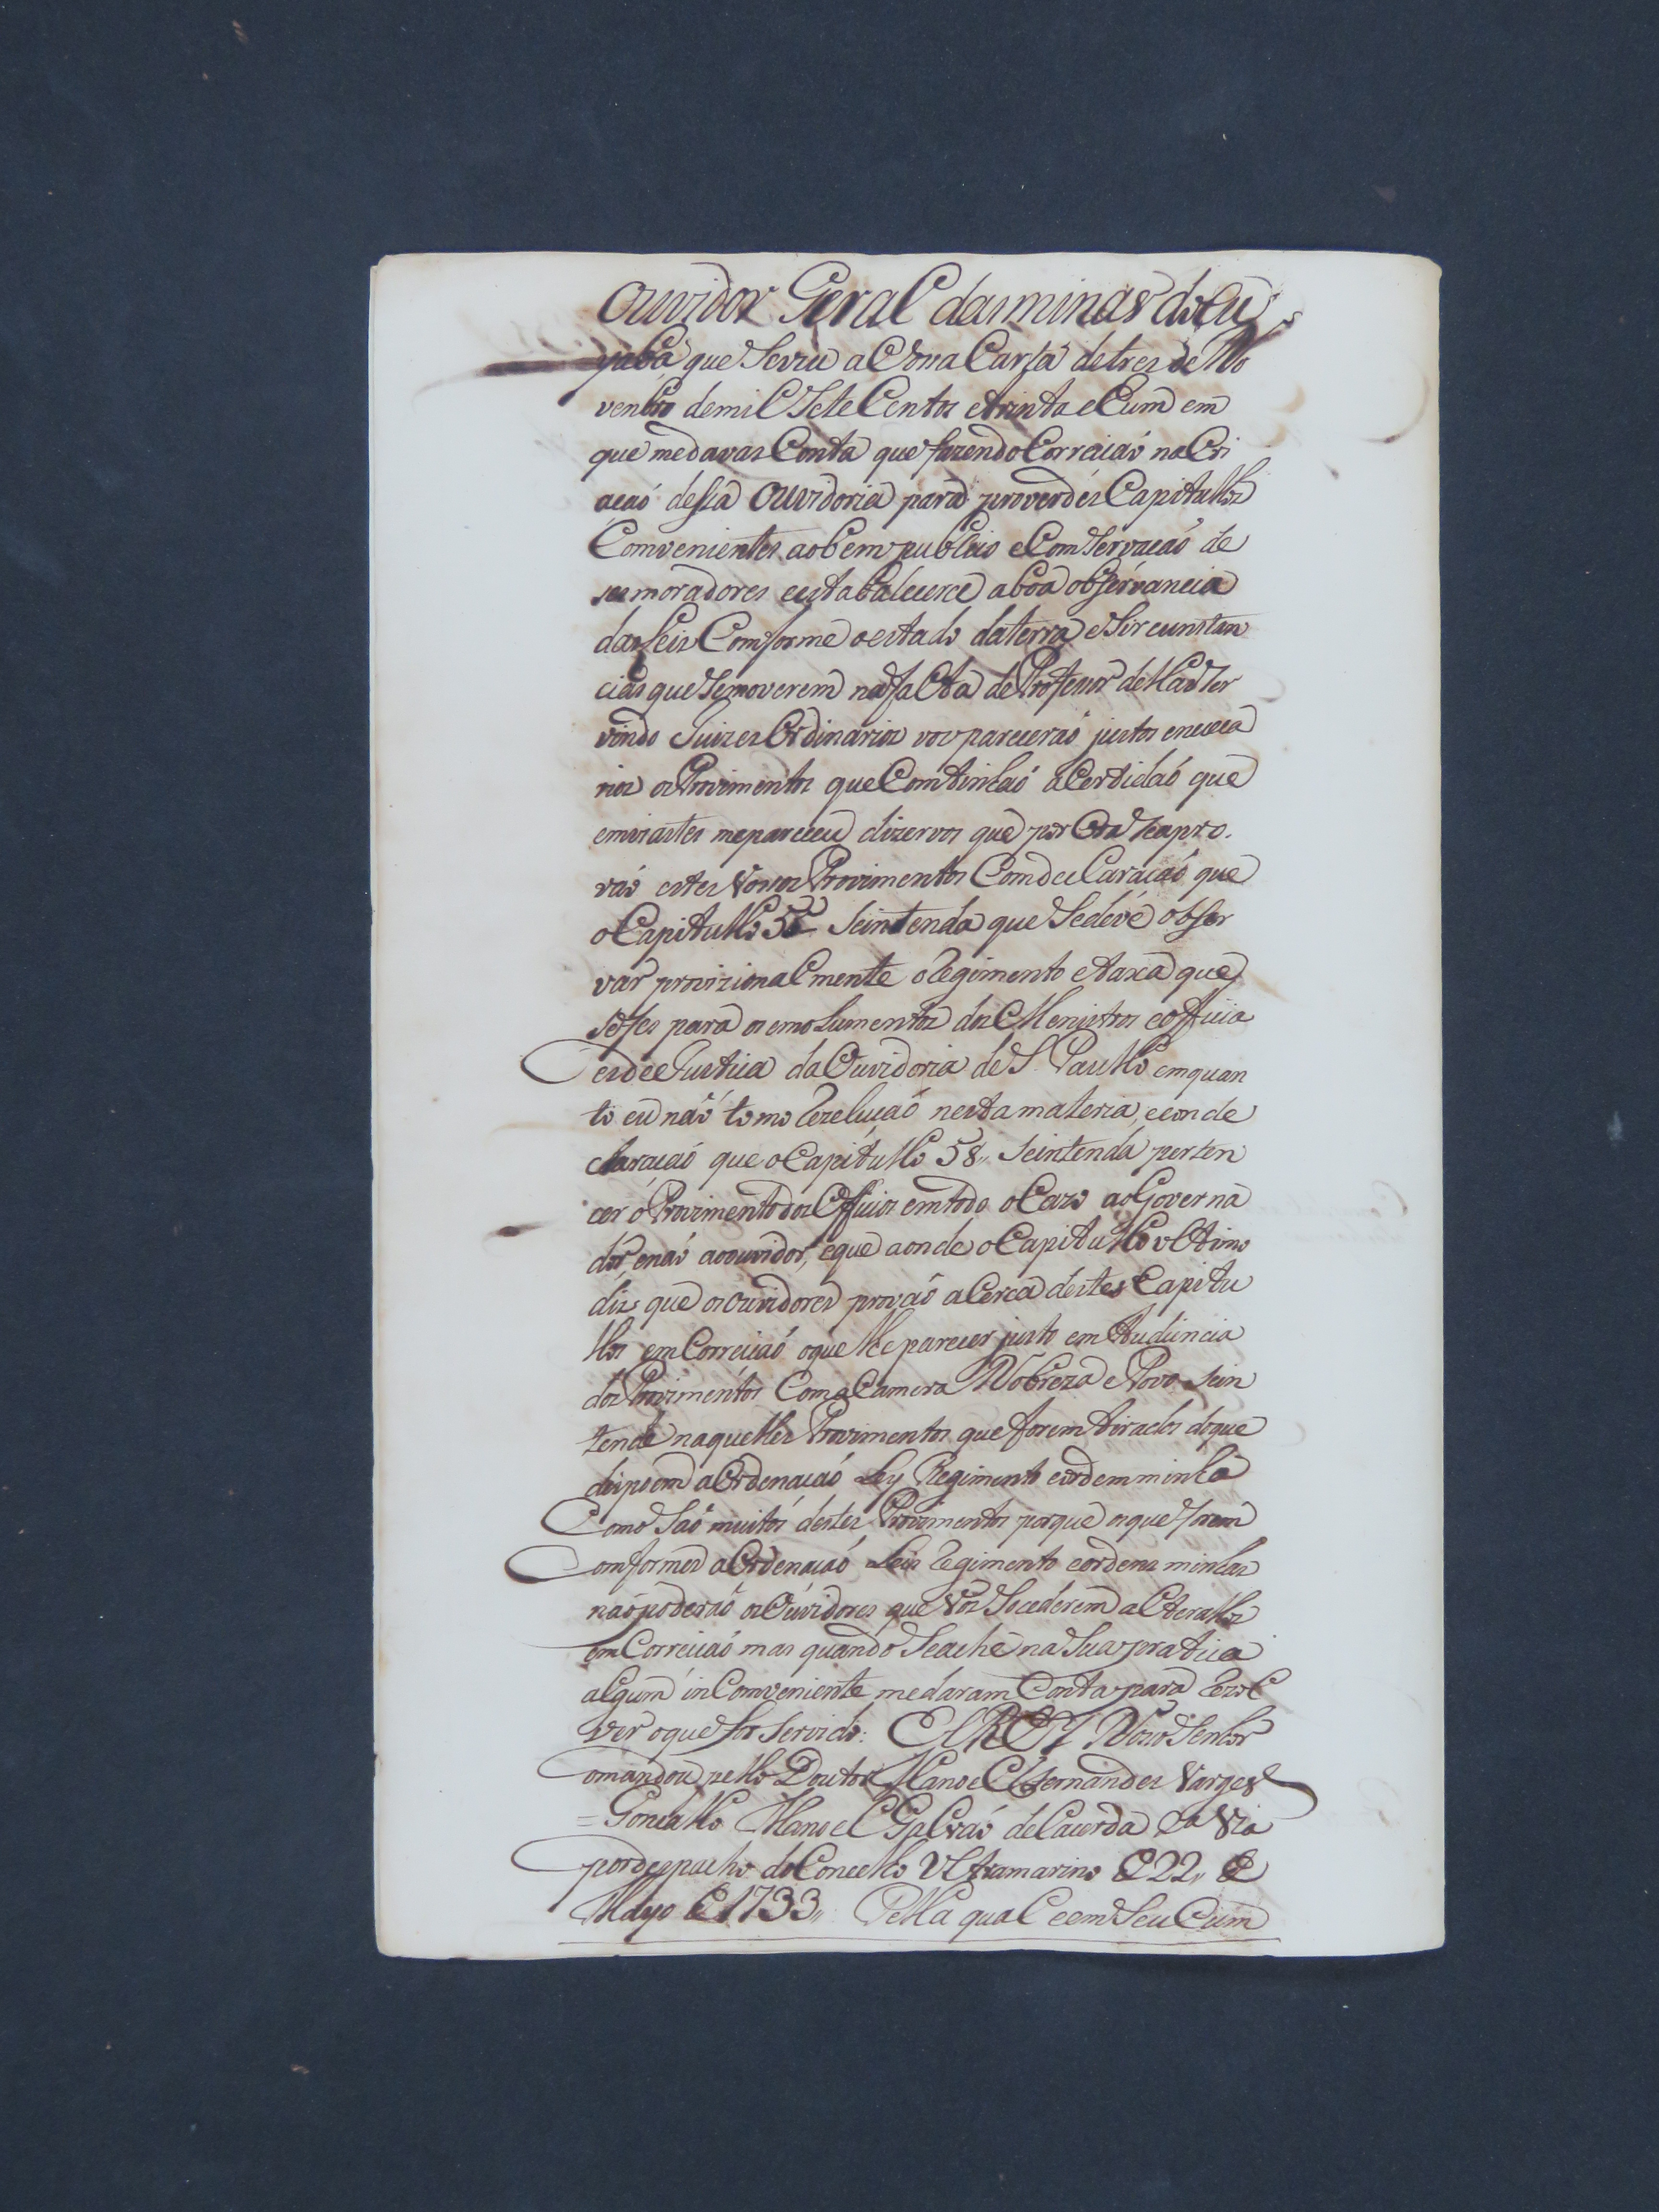 Ouvidor Geral das minas do Cu
yabá que Sevio a Vossa Carta de tres de No
venbro de mil Sete Centos etrinta ehum em
que medavas Conta que fazendo Correição na Cri
ação dessa Ouvidoria para proverdes Capitullos
Comvenientes aobem publico eComServação de
seus moradores eestabalecerce aboa observancia
das Leis Comforme oestado daterra eSircunstan
cias que Semoverem nafalta de Professor deLlas Ser
vindo Juizes Ordinarios vos parecerão justos eneceça
rios os Provimentos que Comtinhão aCertidão que
emviastes mepareceu dizervos que por Ora Seapro
vão estes Vossos Provimentos Comdeclaração que
oCapitullo 55 Seintenda que Sedeve obser
var provizionalmente oRegimento etaxa que
Sefes para osemolumentos dos Menistros eofficia
es deJustiça daOuvidoria de S. Paullo emquan
to eu não tomo Rezelução nesta materia, econde
claração que oCapitullo 58,, Seintenda perten
cer oProvimento dos Officios emtodo oCazo aoGoverna
dor, enão aoouvidor, eque aonde oCapitullo ultimo
dis que osouvidores provão aCerca destes Capitu
llos em Correição oque lhe parecer justo em Audiencia
dos Provimentos Coma Camera Nobreza ePovo Sein
tende naquelles Provimentos que forem tirados doque
despoem aOrdenação Ley Regimento eordem minha
Como São muitos destes Provimentos porque osque forem
Comformes aOrdenação Leis Regimento eordens minhas
nãopoderão osOuvidores que Vos Socederem alterallos
em Correição mas quando Seache na Sua pratica
algum inComveniente medaram Conta para Rezol
ver oque for Servido: ElREY Noso Senhor
omandou pello Doutor Manoel Fernandes Varges
= Goncallo Manoel Galvão deLacerda 2a Via
pordespacho do Concelho Ultramarino de 22,, de
Mayo de 1733,, Pella qual eem Seu Cum